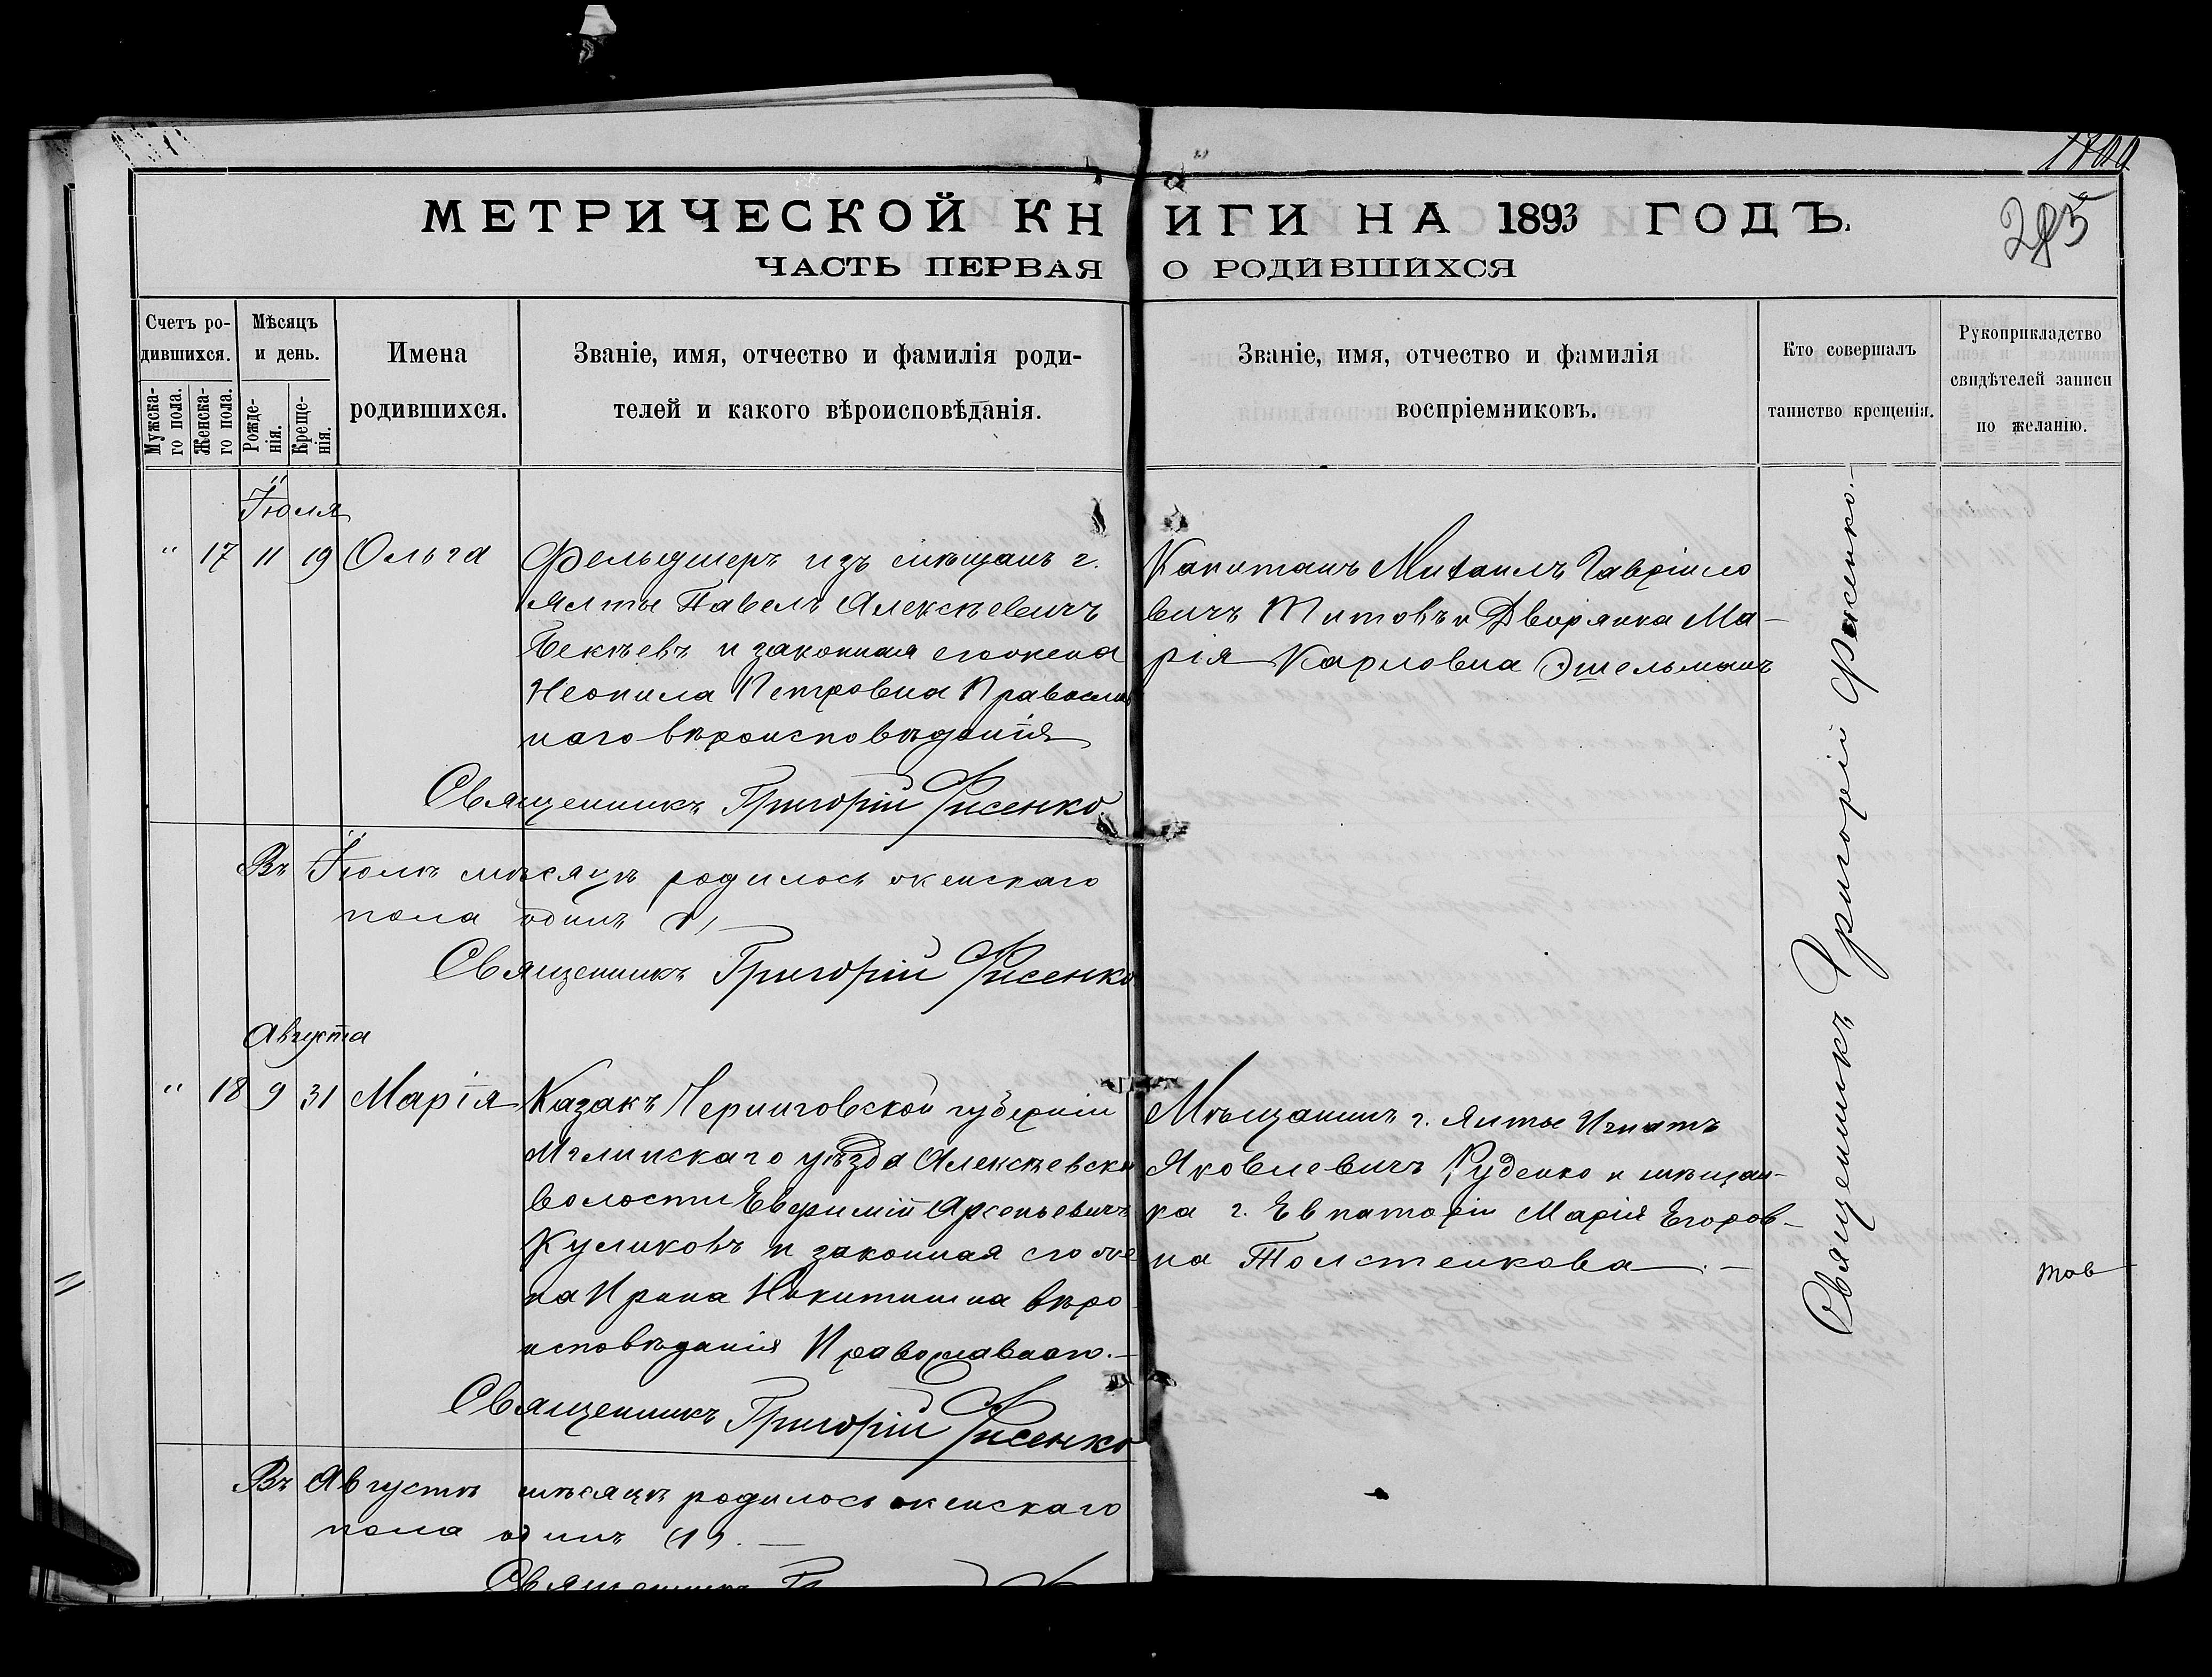 МЕТРИЧЕСКОЙ КНИГИ НА 1893 ГОДЪ.
285
ЧАСТЬ ПЕРВАЯ О РОДИВШИХСЯ
Счетъ ро-
дившихся.
Мужска-
го пола.
Женска-
го пола.
Мѣсяцъ
и день.
Рожде-
нія.
Креще-
нія.
Имена
родившихся.
Званіе, имя, отчество и фамилія роди-
телей и какого вѣроисповѣданія.
Званіе, имя, отчество и фамилія
воспріемниковъ.
Кто совершалъ
таинство крещенія.
Рукоприкладство
свидѣтелей записи
по желанію.
Іюля
" 17 11 19 Ольга
Фельдшеръ изъ мѣщанъ г.
Ялты Павелъ Алексѣевичъ
и законная его жена
Неонила Петровна Православ
наго вѣроисповѣданія
Капитанъ Михаилъ Гавріило
вичъ Титовъ и Дворянка Ма-
рія Карловна Эшельманъ
Священникъ Григорій Фисенко.
Священникъ Григорій Фисенко.
Въ Іюлѣ мѣсяцѣ родилось женскаго
пола одинъ (1)
Священникъ Григорій Фисенко
Августа
" 18 9 31 Марія
Казакъ Черниговской губерніи
Мглинскаго уѣзда Алексѣевской
волости Евфимій Арсеньевичъ
Куликовъ и законная его же
на Ирина Никитишна вѣро
исповѣданія Православнаго.-
Мѣщанинъ г. Ялты Игнатъ
Яковлевичъ Руденко и мѣщан-
ка г. Евпаторіи Марія Егоров-
на Толстенкова.-
Священникъ Григорій Фисенко
Въ Августѣ мѣсяцѣ родилось женскаго
пола одинъ (1). -
Священникъ